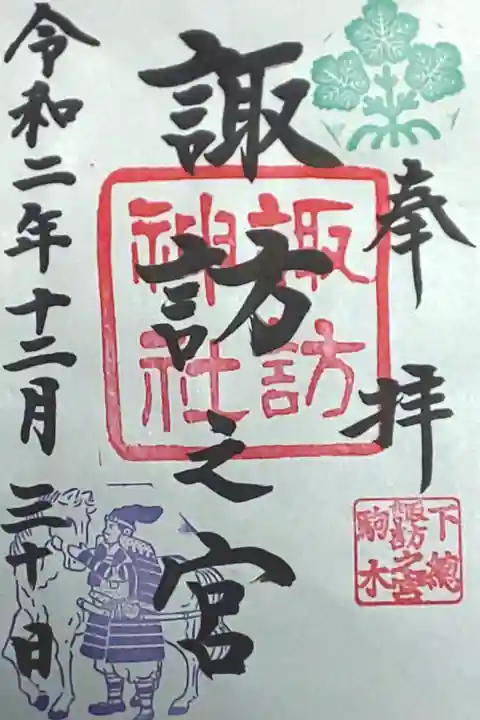 奉拝
諏訪之宮
諏訪
神社
下総
諏訪之宮
駒木
令和二年十二月三十日